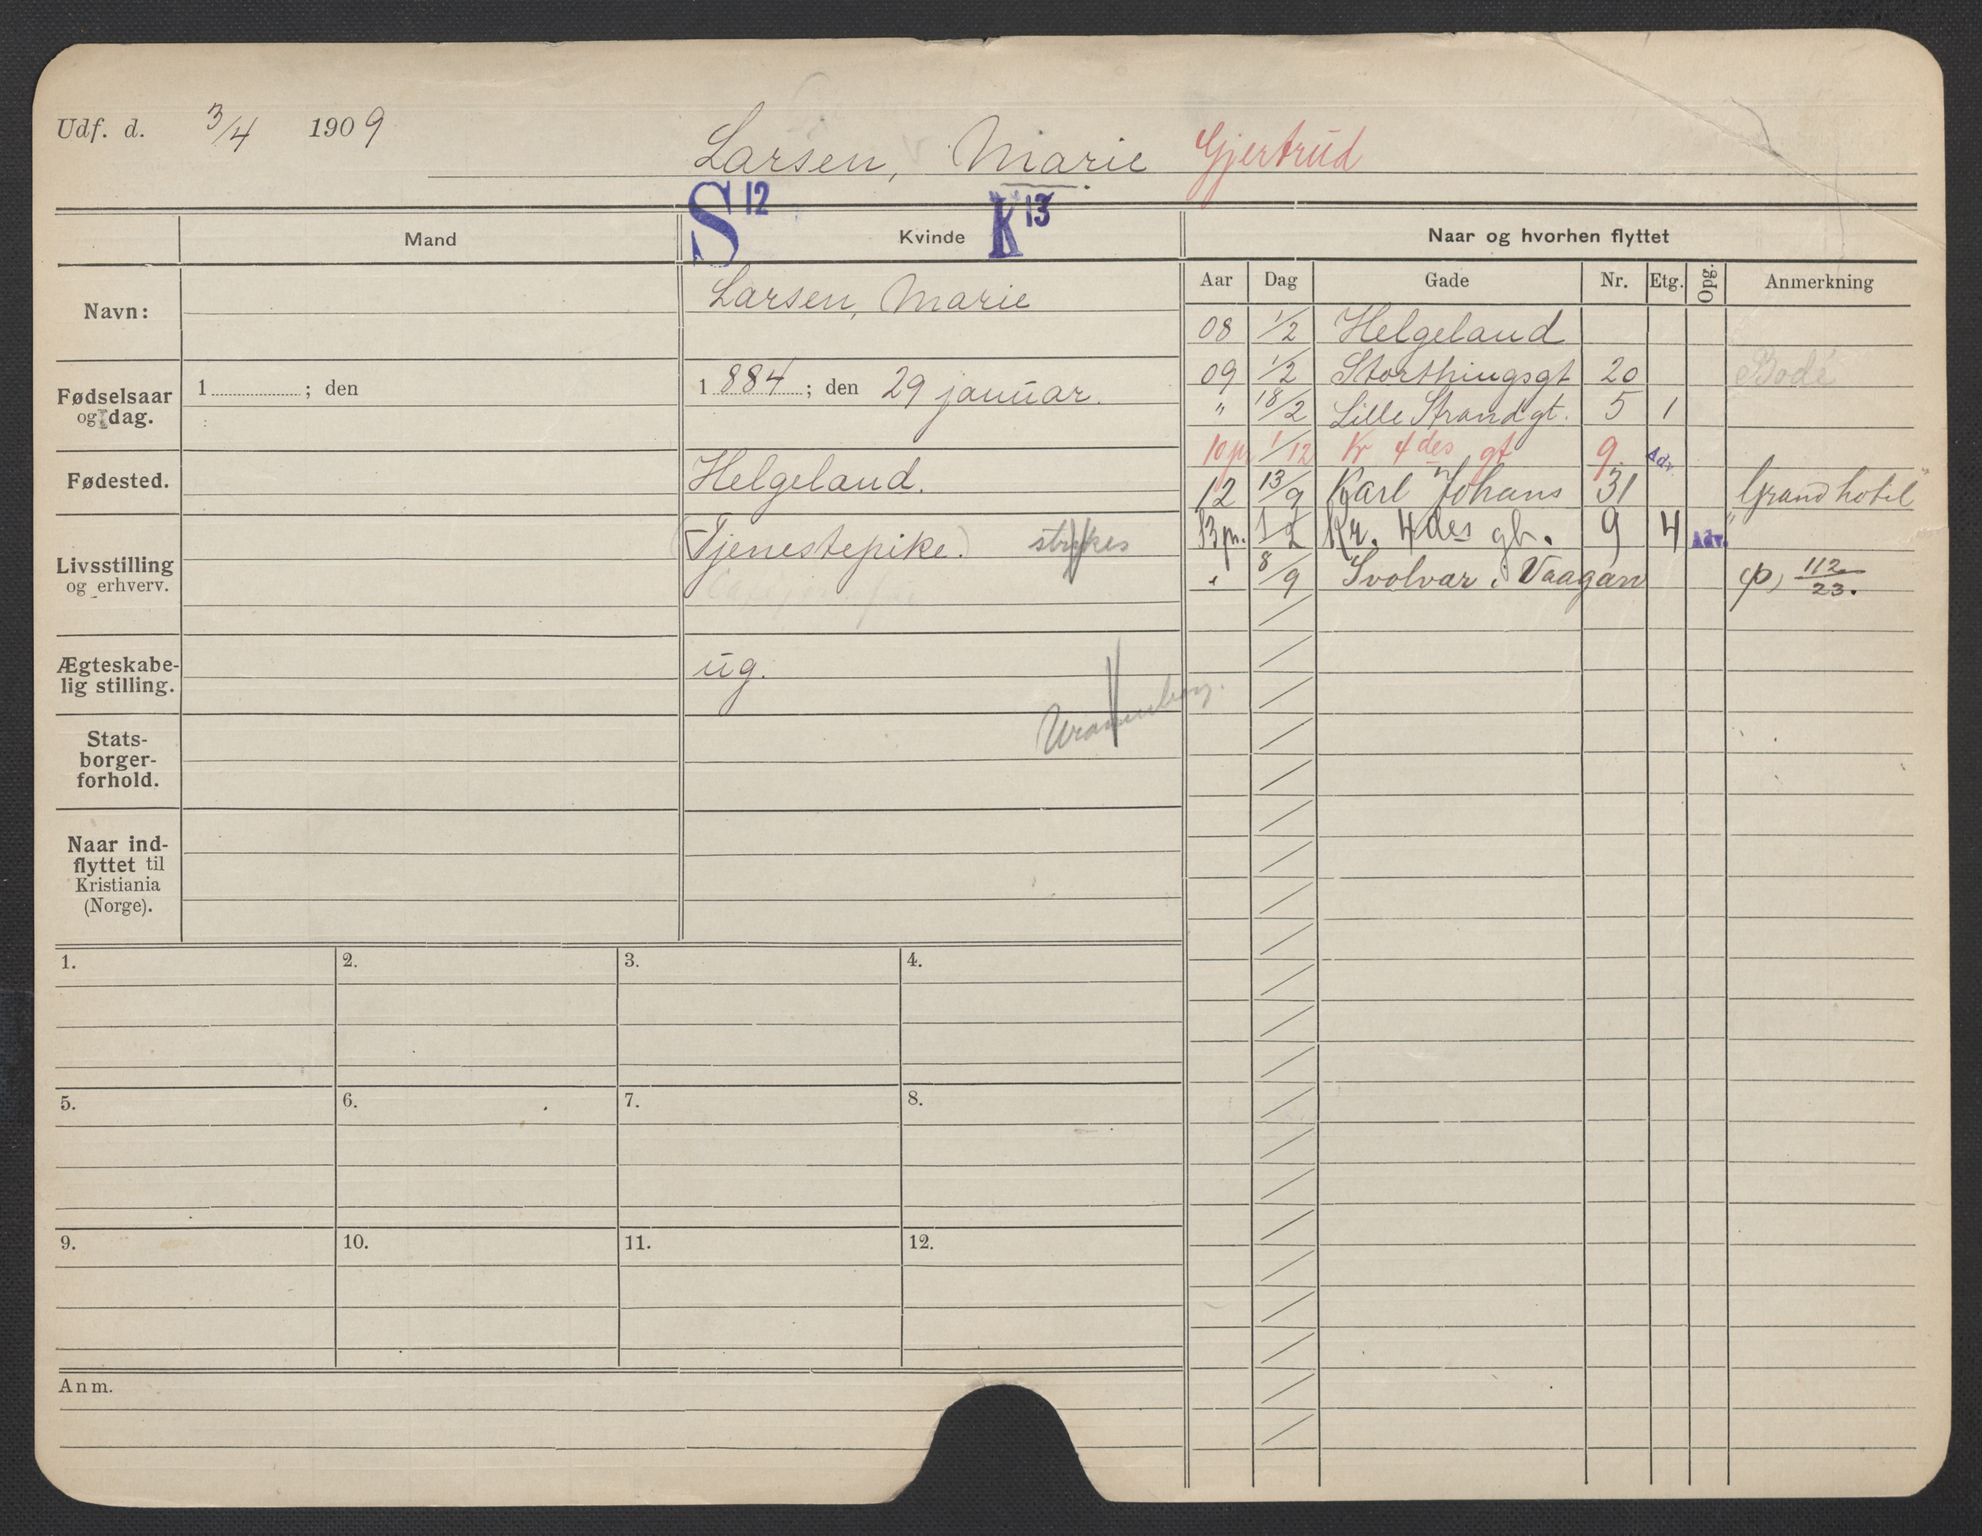 Udf. d. 3/4 1909
Larsen, Marie Gjertrud
S 12
K 13
Mand
Kvinde
Naar og hvorhen flyttet
Navn:
Larsen, Marie
Fødselsaar
og dag.
1 ; den
1 884 ; den 29 januar.
Fødested.
Helgeland.
Livsstilling
og erhverv.
(Tjenestepike.) strykes
Ægteskabe-
lig stilling.
ug.
Stats-
borger-
forhold.
Naar ind-
flyttet til
Kristiania
(Norge).
Aar Dag Gade Nr. Etg. Opg. Anmerkning
08 1/2 Helgeland
09 1/2 Storthingsgt 20 Bodé
" 18/2 Lille Strandgt. 5 1
10 pr 1/12 Kr 4des gt 9 Adr.
12 13/9 Karl Johans 31 "Grand hotel"
13 pr. 1/2 Kr. 4des gt. 9 4 Adv.
" 8/9 Svolvær i Vaagan 112/23.
1. 2. 3. 4.
5. 6. 7. 8.
9. 10. 11. 12.
Anm.